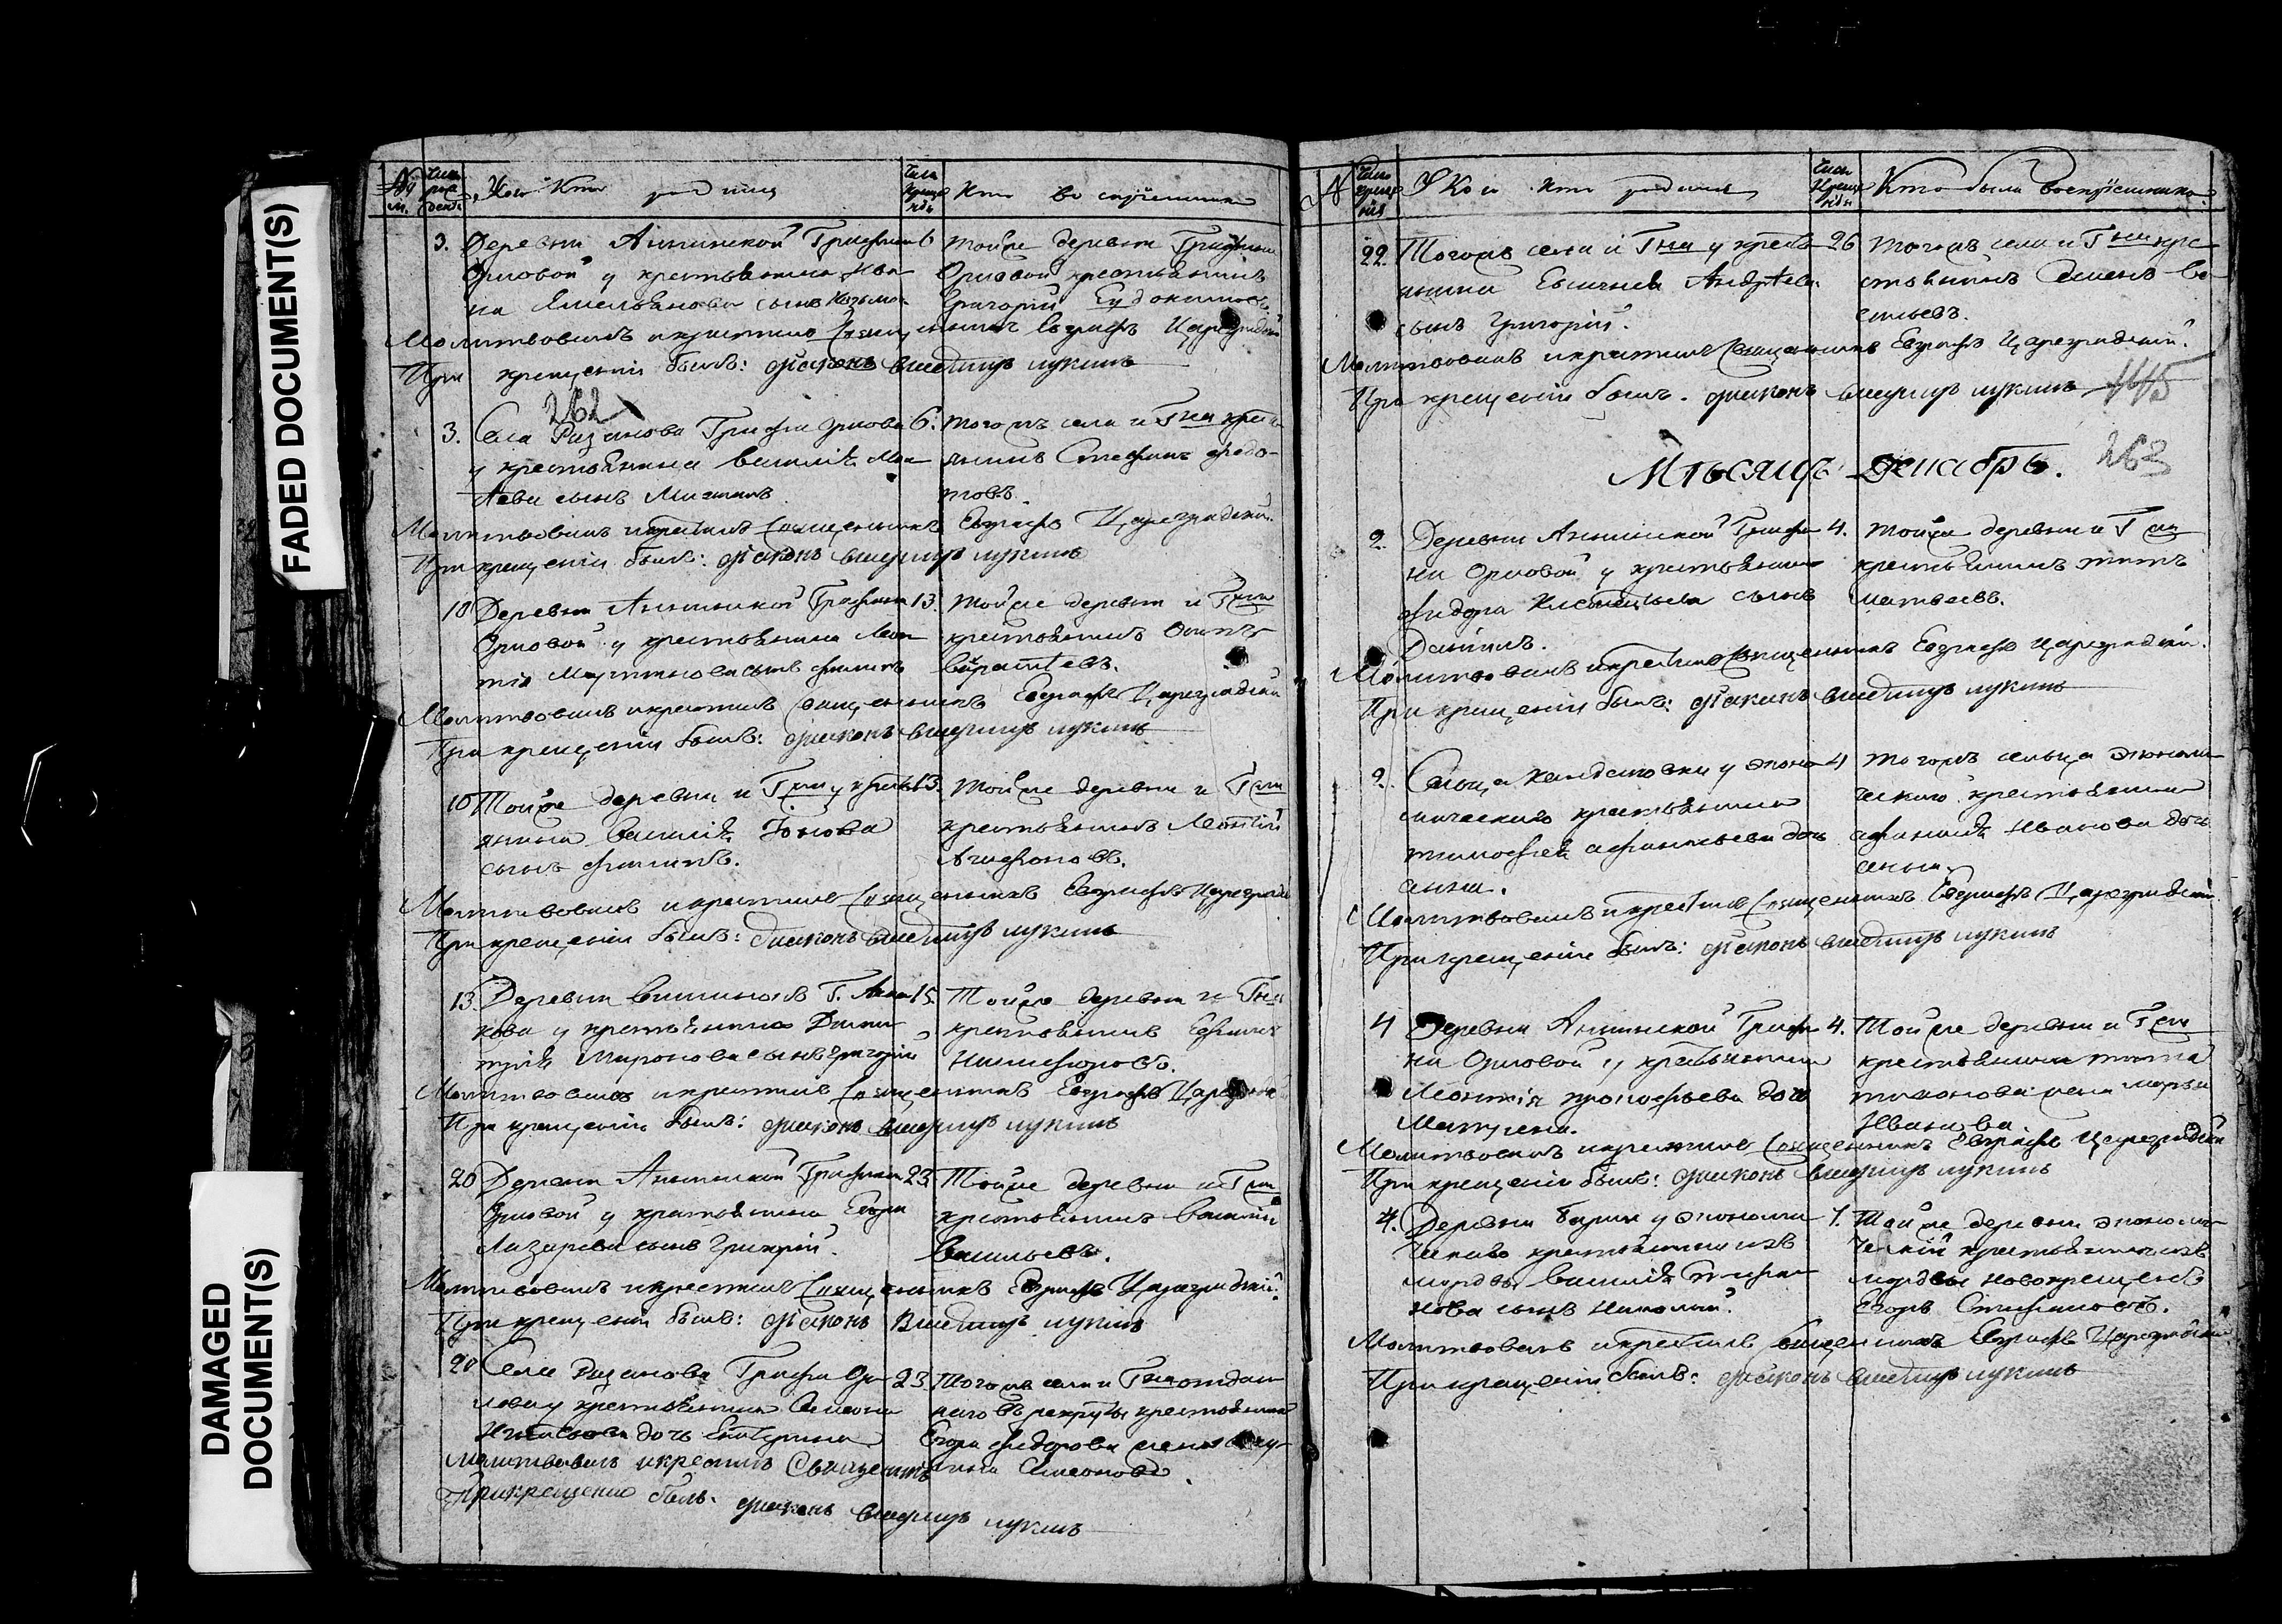 FADED DOCUMENT(S)
DAMAGED
DOCUMENT(S)
Кто родился
Кто восприемники
3. Деревни Аннинской Графини
Орловой у крестьянина Ива
на Емельянова сынъ Козьма
6 тойже деревни Графини
Орловой крестьянинъ
Григорій Евдокимовъ
Молитвовалъ и крестилъ Священникъ Евграфъ Цареградскій
При крещеніи былъ: діаконъ владимиръ лукинъ
262
3. Села Рязанова Графини Орловой
у крестьянина василія
сынъ
6. тогожъ села и Гжи крестья
янинъ Стефанъ Федо
товъ
Молитвовалъ и крестилъ Священникъ Евграфъ Цареградскій.
При крещеніи былъ: діаконъ владимиръ лукинъ
10 Деревни Аннинской Графини
Орловой у крестьянина Леон
тія Мартинова сынъ филипъ
13. тойже деревни и Гжи
крестьянинъ Осипъ
Молитвовалъ и крестилъ Священникъ Евграфъ Цареградскій
При крещеніи былъ: діаконъ владимиръ лукинъ
10 Тойже деревни и Гжи у кресть
янина василія
сынъ филипъ.
13. тойже деревни и Гжи
крестьянинъ Леонтій
Агафоновъ.
Молитвовалъ и крестилъ Священникъ Евграфъ Цареградскій
При крещеніи былъ: діаконъ владимиръ лукинъ
13. Деревни Г.
у крестьянина Дими
трія Миронова сынъ григорій
15. Тойже деревни и Гжи
крестьянинъ Ефимъ
Никифоровъ.
Молитвовалъ и крестилъ Священникъ Евграфъ Цареградскій
При крещеніи былъ: діаконъ владимиръ лукинъ
20 Деревни Аннинской Графини
Орловой у крестьянина Егора
Лазарева сынъ Григорій.
23. Тойже деревни и Гжи
крестьянинъ василій
васильевъ.
Молитвовалъ и крестилъ Священникъ Евграфъ Цареградскій.
При крещеніи былъ: діаконъ Владимиръ лукинъ
20 Села Рязанова Графини Ор
ловой у крестьянина Симеона
Игнатьева дочь Екатерина
23. Тогожъ села и Гжи отдан
наго въ рекруты крестьянина
Егора федорова жена
Симеонова.
Молитвовалъ и крестилъ Священникъ
При крещеніи былъ. діаконъ владимиръ лукинъ
У Кого Кто родился
Кто были воспріемники
22. Тогожъ села и Гжи у кресть
янина Андрѣева
сынъ Григорій.
26 Тогожъ села и Гжи кре
стьянинъ Семенъ ва
сильевъ.
Молитвовалъ и крестилъ Священникъ Евграфъ Цареградскій.
При крещеніи былъ. діаконъ владимиръ лукинъ
445
Мѣсяцъ Декабрь.
263
2. Деревни Аннинской Графи
ни Орловой у крестьянина
фидора сынъ
Даніилъ.
4. Тойже деревни и Гжи
крестьянинъ титъ
матвеевъ.
Молитвовалъ и крестилъ Священникъ Евграфъ Цареградскій.
При крещеніи былъ: діаконъ владимиръ лукинъ
2. Сельца Кандаковки у эконо
мическаго крестьянина
тимофея афанасьева дочь
анна.
4 Тогожъ сельца экономи
ческаго крестьянина
Иванова дочь
анна.
Молитвовалъ и крестилъ Священникъ Евграфъ Цареградскій.
При крещеніи былъ: діаконъ владимиръ лукинъ
4 Деревни Аннинской Графи
ни Орловой у крестьянина
Леонтія прокофьева дочь
Матрена.
4. Тойже деревни и Гжи
крестьянина тита
жена марья
Иванова
Молитвовалъ и крестилъ Священникъ Евграфъ Цареградскій
При крещеніи былъ: діаконъ владимиръ лукинъ
4. Деревни у экономи
ческаго крестьянина изъ
мордвы василія
сынъ николай.
7. Тойже деревни экономи
ческій крестьянинъ изъ
мордвы новокрещенъ
Егоръ Стифановъ.
Молитвовалъ и крестилъ Священникъ Евграфъ Цареградскій
При крещеніи былъ: діаконъ владимиръ лукинъ